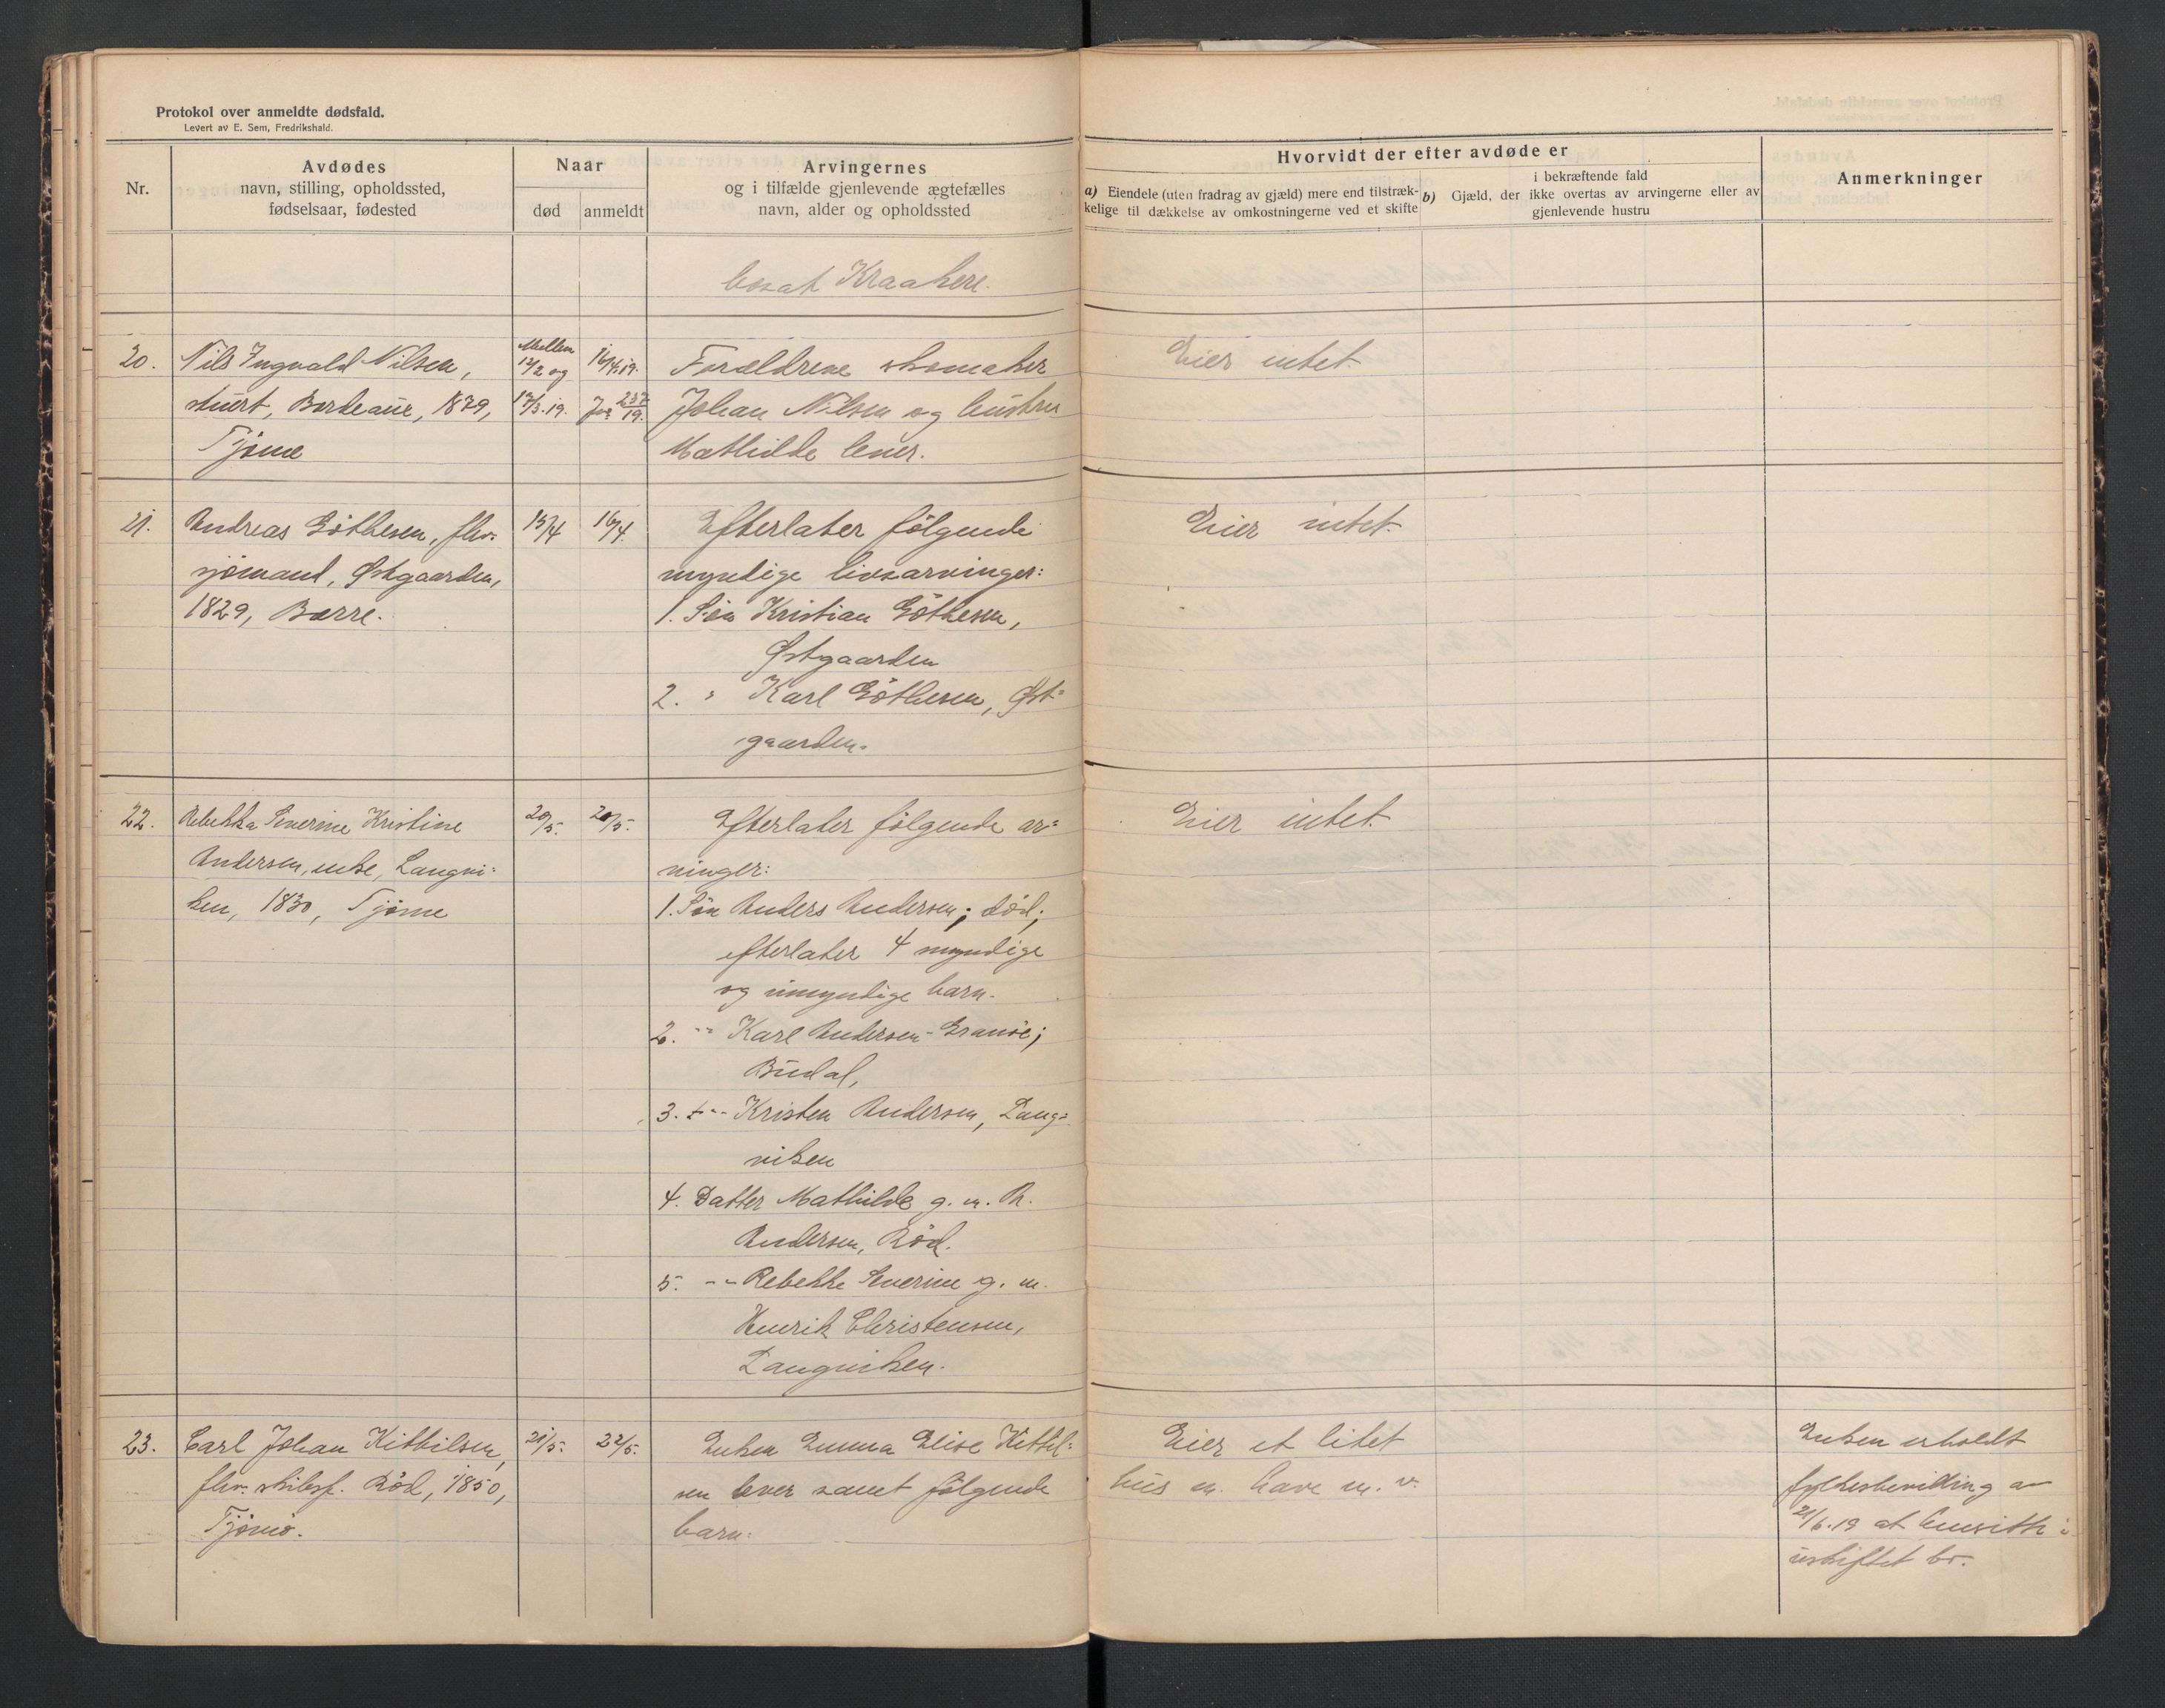 Protokol over anmeldte dødsfald.
Levert av E. Sem, Fredrikshald.
Nr.
Avdødes
navn, stilling, opholdssted,
fødselsaar, fødested
Naar
død
anmeldt
Arvingernes
og i tilfælde gjenlevende ægtefælles
navn, alder og opholdssted
Hvorvidt der efter avdøde er
a) Eiendele (uten fradrag av gjæld) mere end tilstræk-
kelige til dækkelse av omkostningerne ved et skifte
i bekræftende fald
b) Gjæld, der ikke overtas av arvingerne eller av
gjenlevende hustru
Anmerkninger
bosat Kraakere.
20.
Nils Ingvald Nilsen,
stuert, Bordeaux, 1879,
Tjømø
Mellem
12/2 og
17/3.19.
16/4.19.
Jnr 237/19.
Forældrene skomaker
Johan Nilsen og hustru
Mathilde lever.
Eier intet.
21.
Andreas Göthesen, fhv.
sjømand, Østgaarden,
1829, Borre.
15/4
16/4.
Efterlater følgende
myndige livsarvinger:
1. Søn Kristian Göthesen,
Østgaarden
2. " Karl Göthesen, Øst=
gaarden.
Eier intet.
22.
Rebekka Severine Kristine
Andersen, enke, Langvi=
ken, 1830, Tjømø
20/5.
20/5.
Efterlater følgende ar=
vinger:
1. Søn Anders Andersen; død;
efterlater 4 myndige
og umyndige barn.
2. -"- Karl Andersen-Granöe;
Budal,
3. -"- Kristen Andersen, Lang=
viken
4. Datter Mathilde g. m. A.
Andersen, Röd.
5. -"- Rebekke Severine g. m.
Henrik Christensen,
Langviken.
Eier intet.
23.
Carl Johan Kittilsen,
fhv. skibsf. Röd, 1850,
Tjømø.
21/5.
22/5.
Enken Emma Elise Kittil=
sen lever samt følgende
barn:
Eier et litet
hus m. have m. v.
Enken erholdt
fylkesbevilling av
21/6.19 at hensitte i
uskiftet bo.